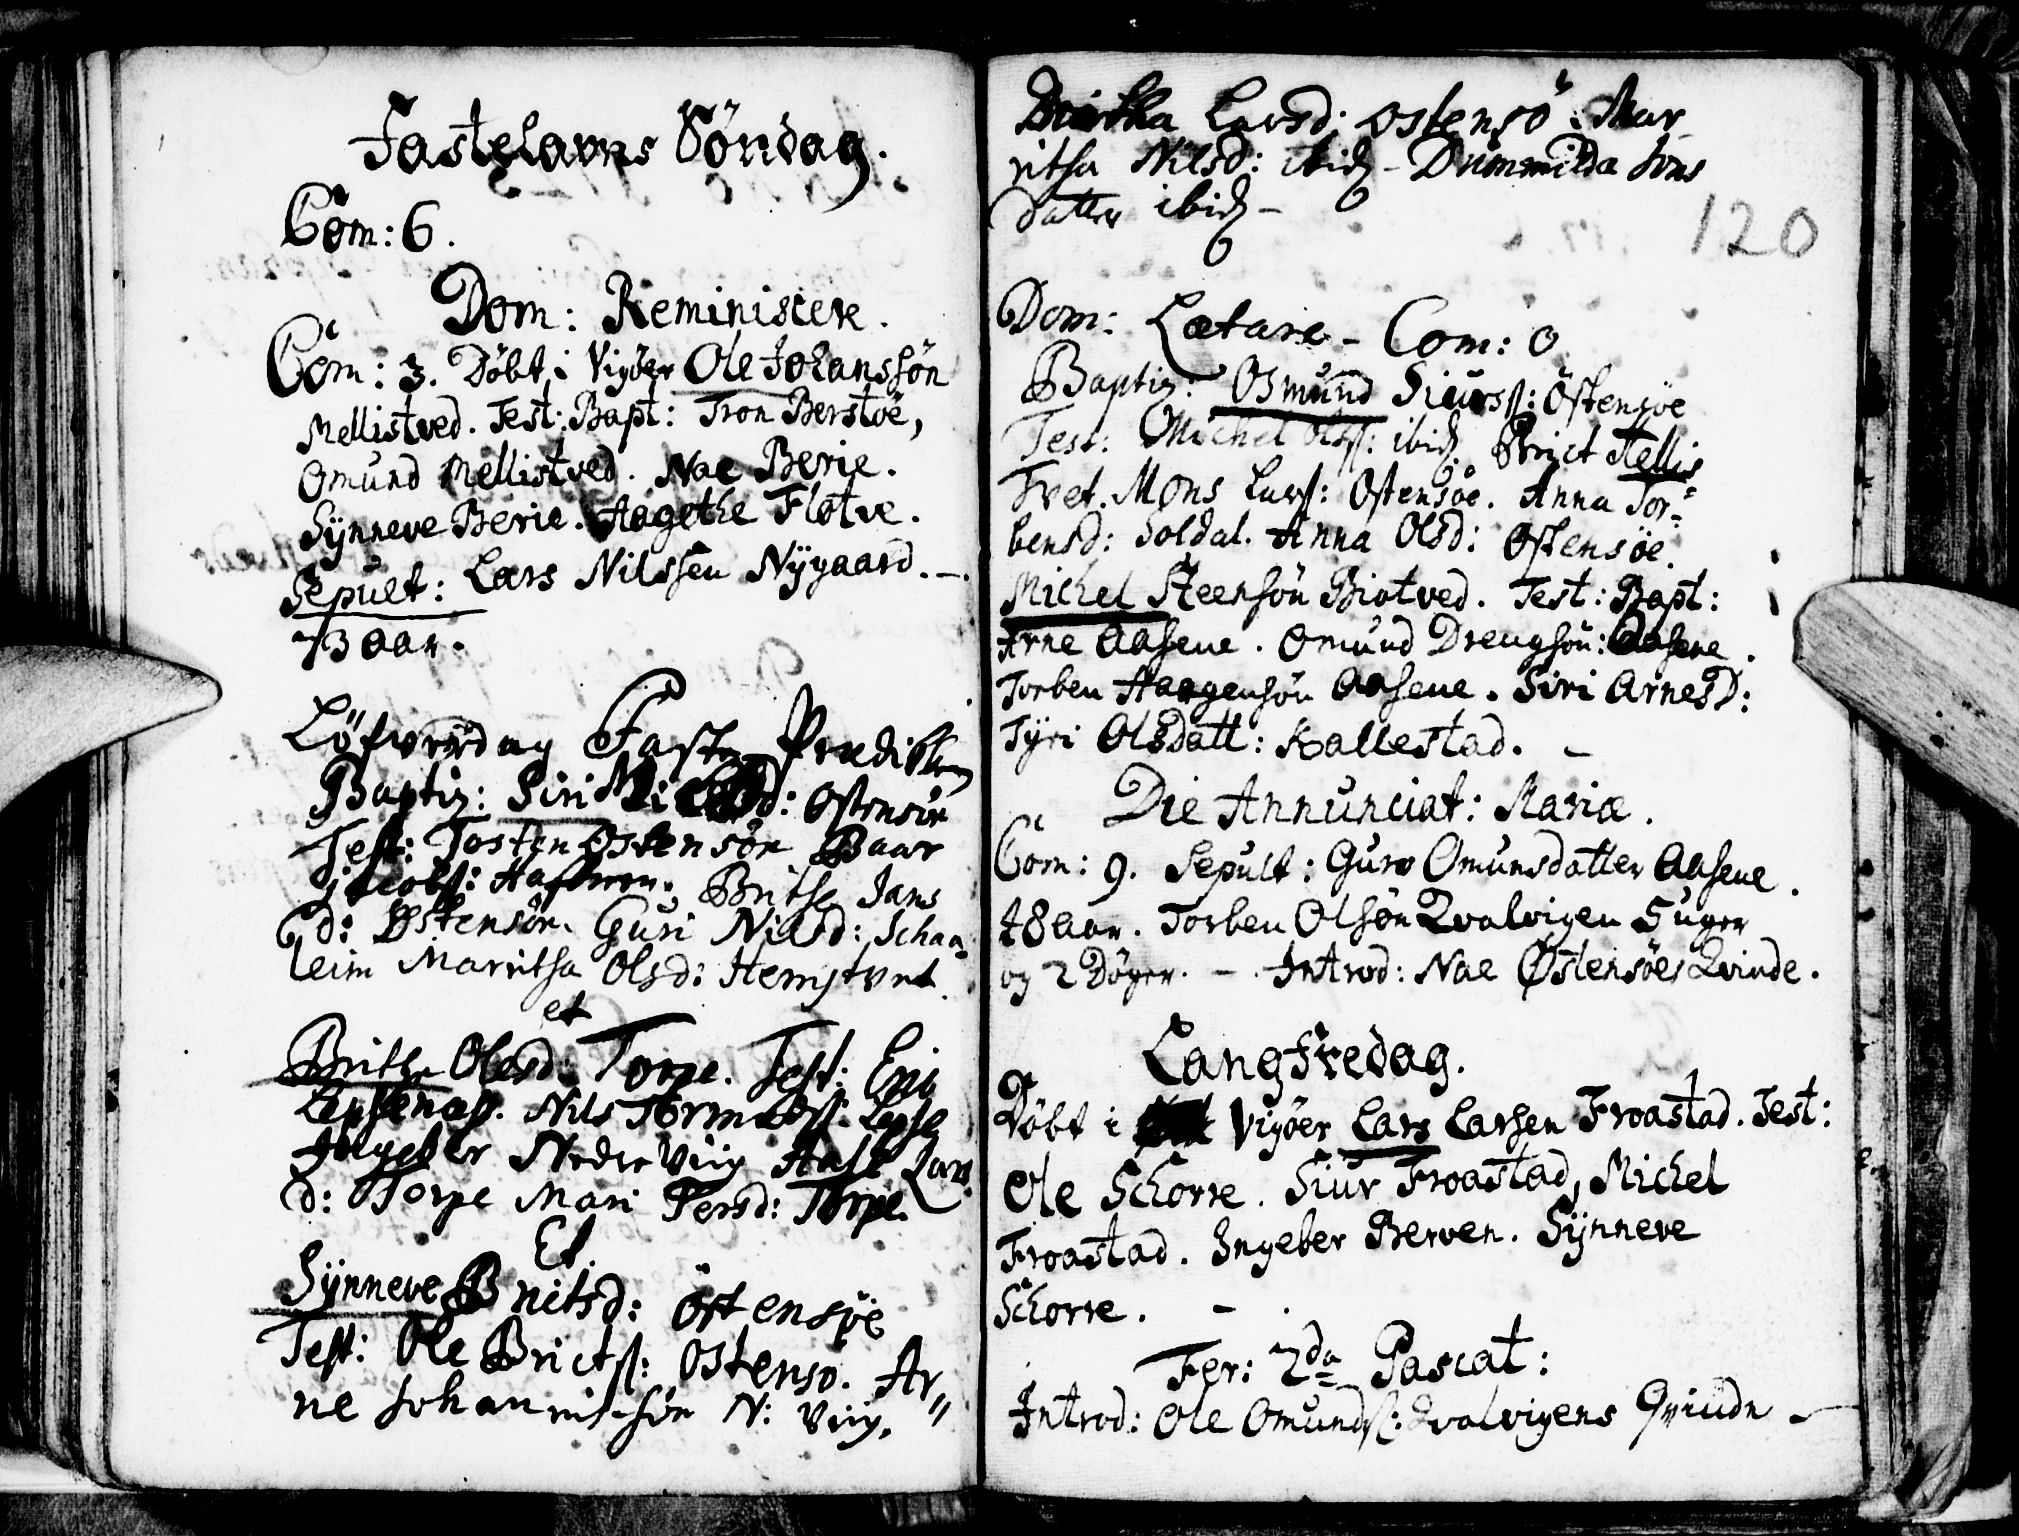 Fastelavns Söndag.
Com: 6.
Dom: Reminiscere.
Com: 3. Döbt i Vigöer Ole Johanssön
Mellistved. Test: Bapt: Tron Berstöe,
Omund Mellistved. Nae Berie.
Synneve Berie. Aagethe Flotve.
Sepult: Lars Nilssen Nygaard. –
73 aar.
Löfverdag Faste Prediken
Baptiz: Siri d: Ostensöe
Test: Tosten Ostensöe Baar
jacobss: Britha Jans
d: Östensöe. Guri Nilsd: Schaa
leim Marritha Olsd: Hemstvet
et
Britha Olesd: Torpe. Test:
Nils
Ingeber Nedre Viig Lars
d: Torpe Mari Persd: Torpe.
Et.
Synneve Britsd: Östensöe
Test: Ole Brictss: Ostensö. Ar"
ne Johannissön N: Viig.
Britha Larsd: Ostensö. Mar
ritha Nilsd: ibid – Dummilda Jons
datter ibid –
120
Dom: Lætare – Com: 0
Baptiz: Osmund Siurss: Östensöe
Test: Michel Olss: ibid. Brict Tellis
Tvet. Mons Larss: Ostensöe. Anna Tor=
bensd: Soldal. Anna Olsd: Ostensöe.
Michel Steensön Biotved. Test: Bapt:
Arne Aasene. Omund Dreugsön: Aasene.
Torben Haagensön Aasene. Siri Arnesd:
Tyri Olsdatt: Kallestad. –
Die Annunciat: Mariæ.
Com: 9. Sepult: Guro Omunsdatter Aasene.
18 aar. Torben Olsön Qvalvigen 5 uger
og 2 Döger. – Introd: Nae Østensöes Qvinde.
Langfredag.
Döbt i Vigöer Lars Larsen Froastad. Test:
Ole Schorre. Siur Froastad, Michel
Froastad. Ingeber Berven. Synneve
Schorre. –
Fer: 2da Pascat:
Introd: Ole Omundss: Qvalvigens Qviude –